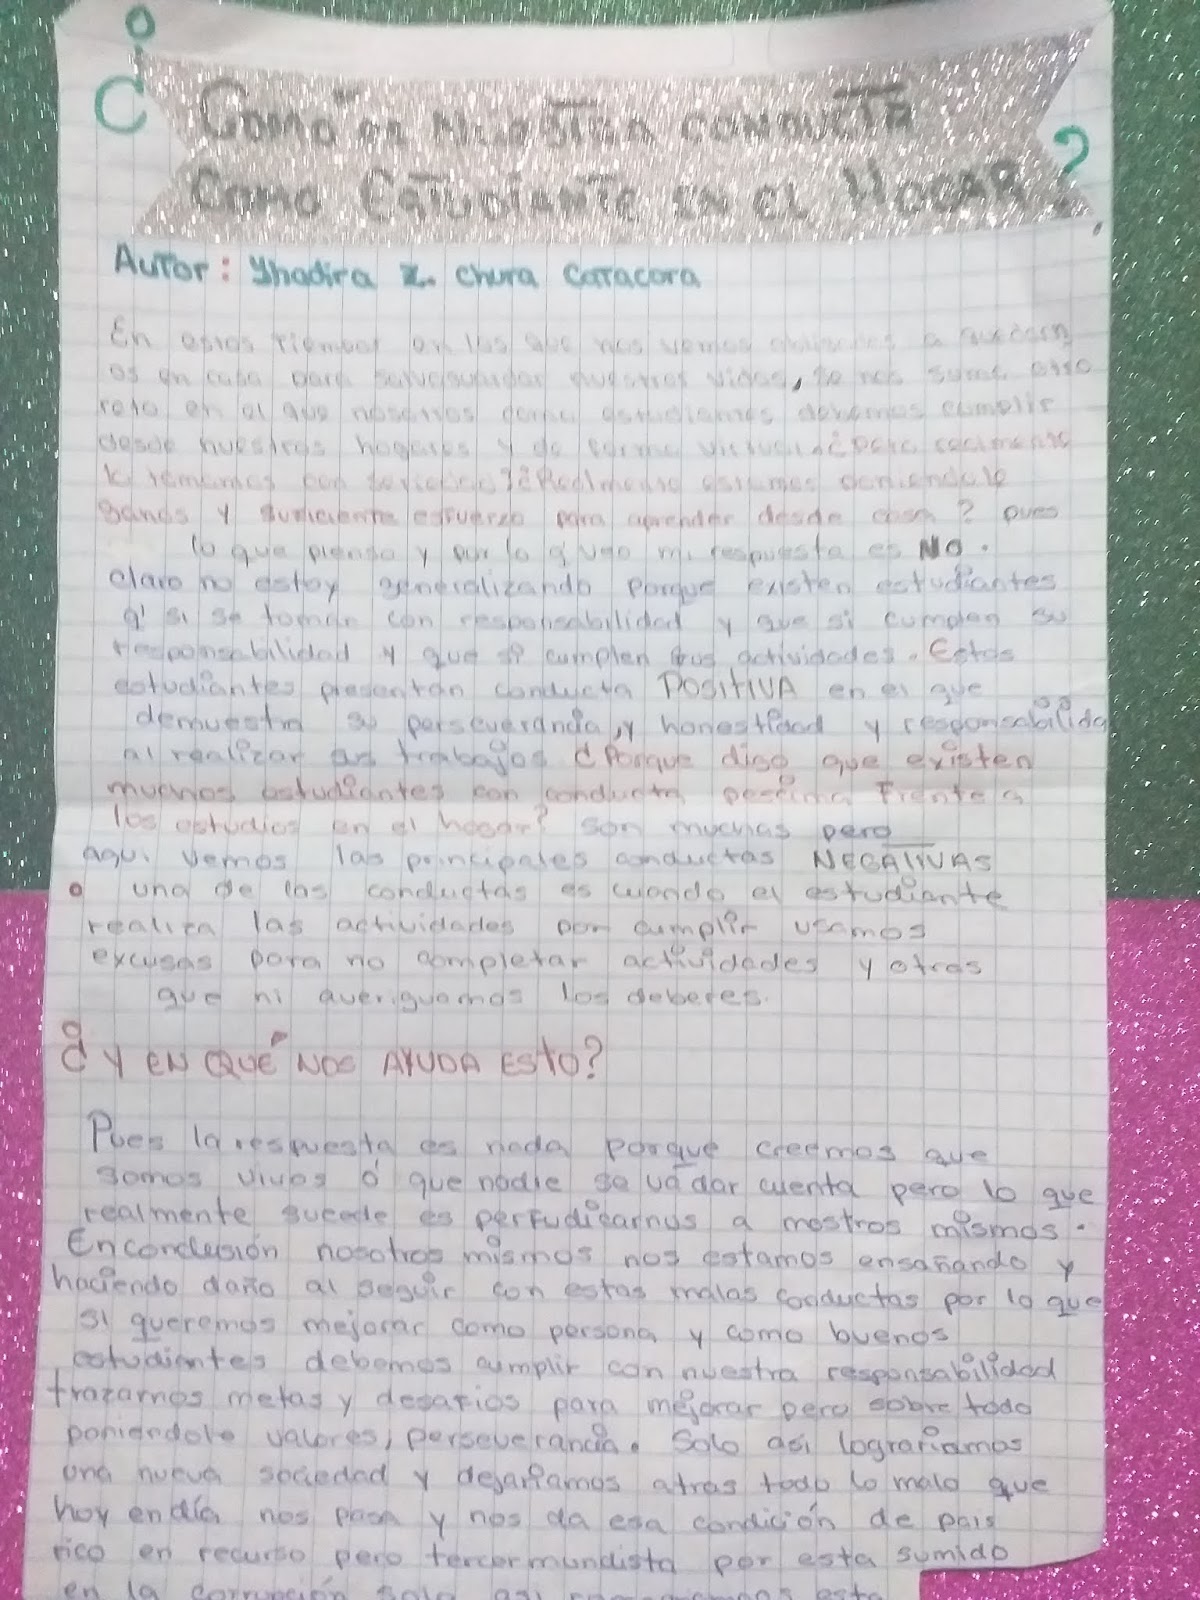 ¿Como es Nuestra conducta
como Estudiante en el Hogar?
Autor: Yhadira Z. Chura Catacora
En estos tiempos en los que nos vemos obligados a quedarn
os en casa para salvaguardar nuestras vidas, se nos suma otro
reto en el que nosotros como estudiantes debemos cumplir
desde nuestros hogares y de forma virtual. ¿Pero realmente
lo tomamos con seriedad? ¿Realmente estamos poniendole
ganas y suficiente esfuerzo para aprender desde casa? pues
lo que pienso y por lo q' veo mi respuesta es NO.
claro no estoy generalizando porque existen estudiantes
q' si se toman con responsabilidad y que si cumplen su
responsabilidad y que si cumplen sus actividades. Estos
estudiantes presentan conducta POSITIVA en el que
demuestra su perseverancia, y honestidad y responsabilida
al realizar sus trabajos ¿Porque digo que existen
muchos estudiantes con conducta pesima Frente a
los estudios en el hogar? son muchas pero
aqui vemos las principales conductas NEGATIVAS
• una de las conductas es cuando el estudiante
realiza las actividades por cumplir usamos
excusas para no completar actividades y otras
que ni averiguamos los deberes.
¿Y EN QUÉ NOS AYUDA ESTO?
Pues la respuesta es nada porque creemos que
somos vivos ó que nadie se va dar cuenta pero lo que
realmente sucede es perjudicarnos a nostros mismos.
En conclusión nosotros mismos nos estamos ensañando y
haciendo daño al seguir con estas malas conductas por lo que
si queremos mejorar como persona y como buenos
estudiantes debemos cumplir con nuestra responsabilidad
trazarnos metas y desafios para mejorar pero sobre todo
poniendole valores, perseverancia. Solo asi lograriamos
una nueva sociedad y dejariamos atras todo lo malo que
hoy en día nos pasa y nos da esa condición de pais
rico en recurso pero tercermundista por esta sumido
en la corrupción solo asi esta